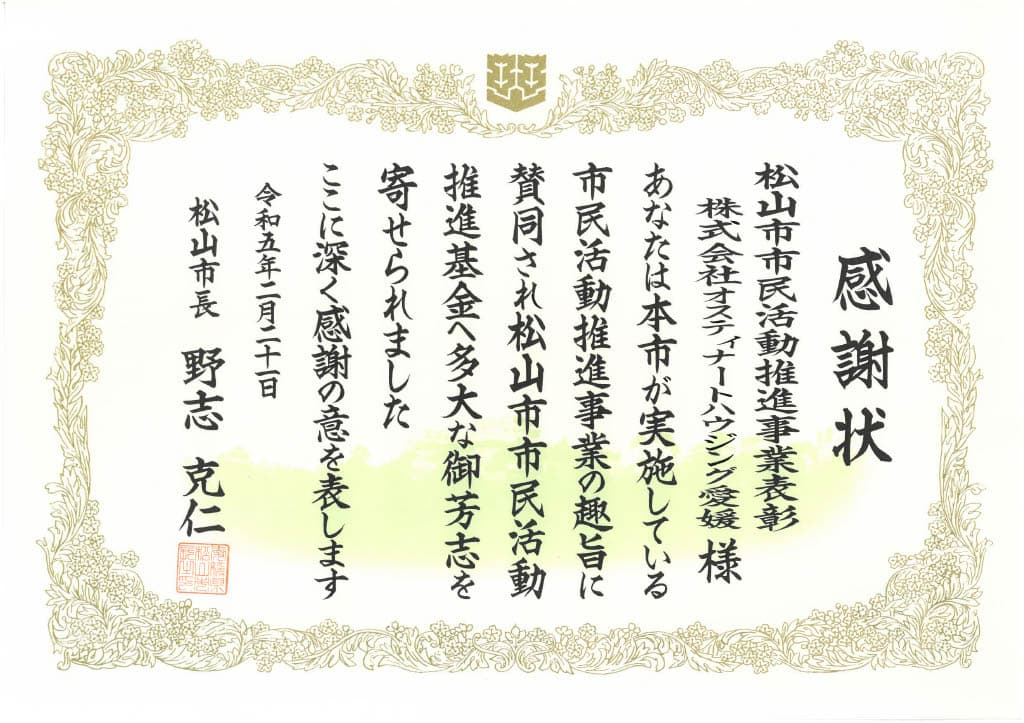 感謝状
松山市市民活動推進事業表彰
株式会社オスティナートハウジング愛媛 様
あなたは本市が実施している
市民活動推進事業の趣旨に
賛同され松山市市民活動
推進基金へ多大な御芳志を
寄せられました
ここに深く感謝の意を表します
令和五年二月二十一日
松山市長 野志 克仁